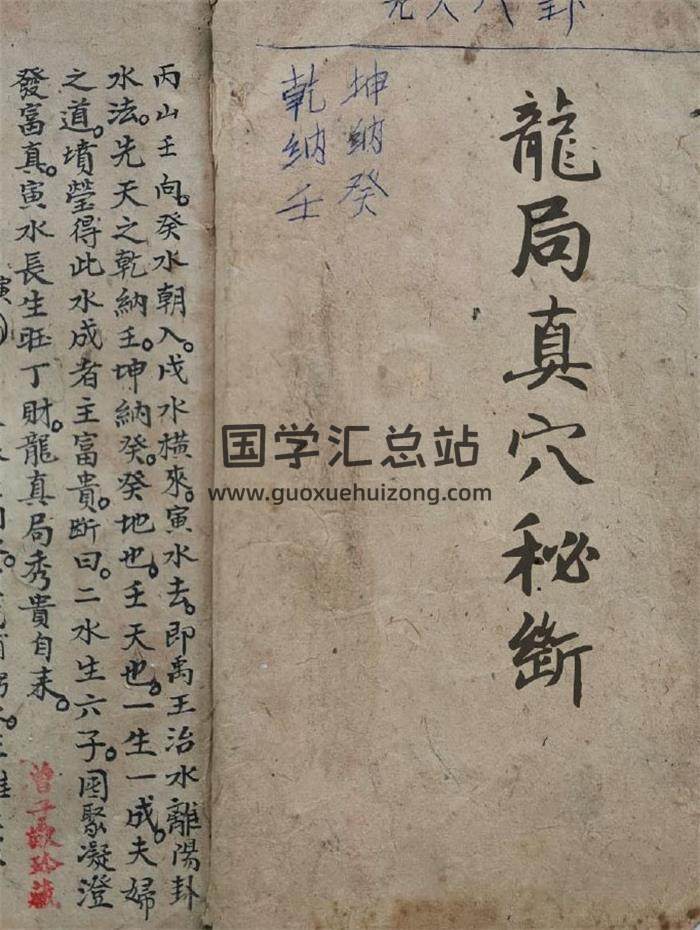 八卦
龍局真穴秘斷
坤納癸
乾納壬
丙山壬向。癸水朝入。戌水橫來。寅水去。即禹王治水離陽卦
水法。先天之乾納壬。坤納癸。癸地也。壬天也。一生一成。夫婦
之道。墳瑩得此水成者主富貴。斷曰。二水生六子。囷聚凝澄
發富真。寅水長生旺丁財。龍真局秀貴自来。
國学汇总站
www.guoxuehuizong.com